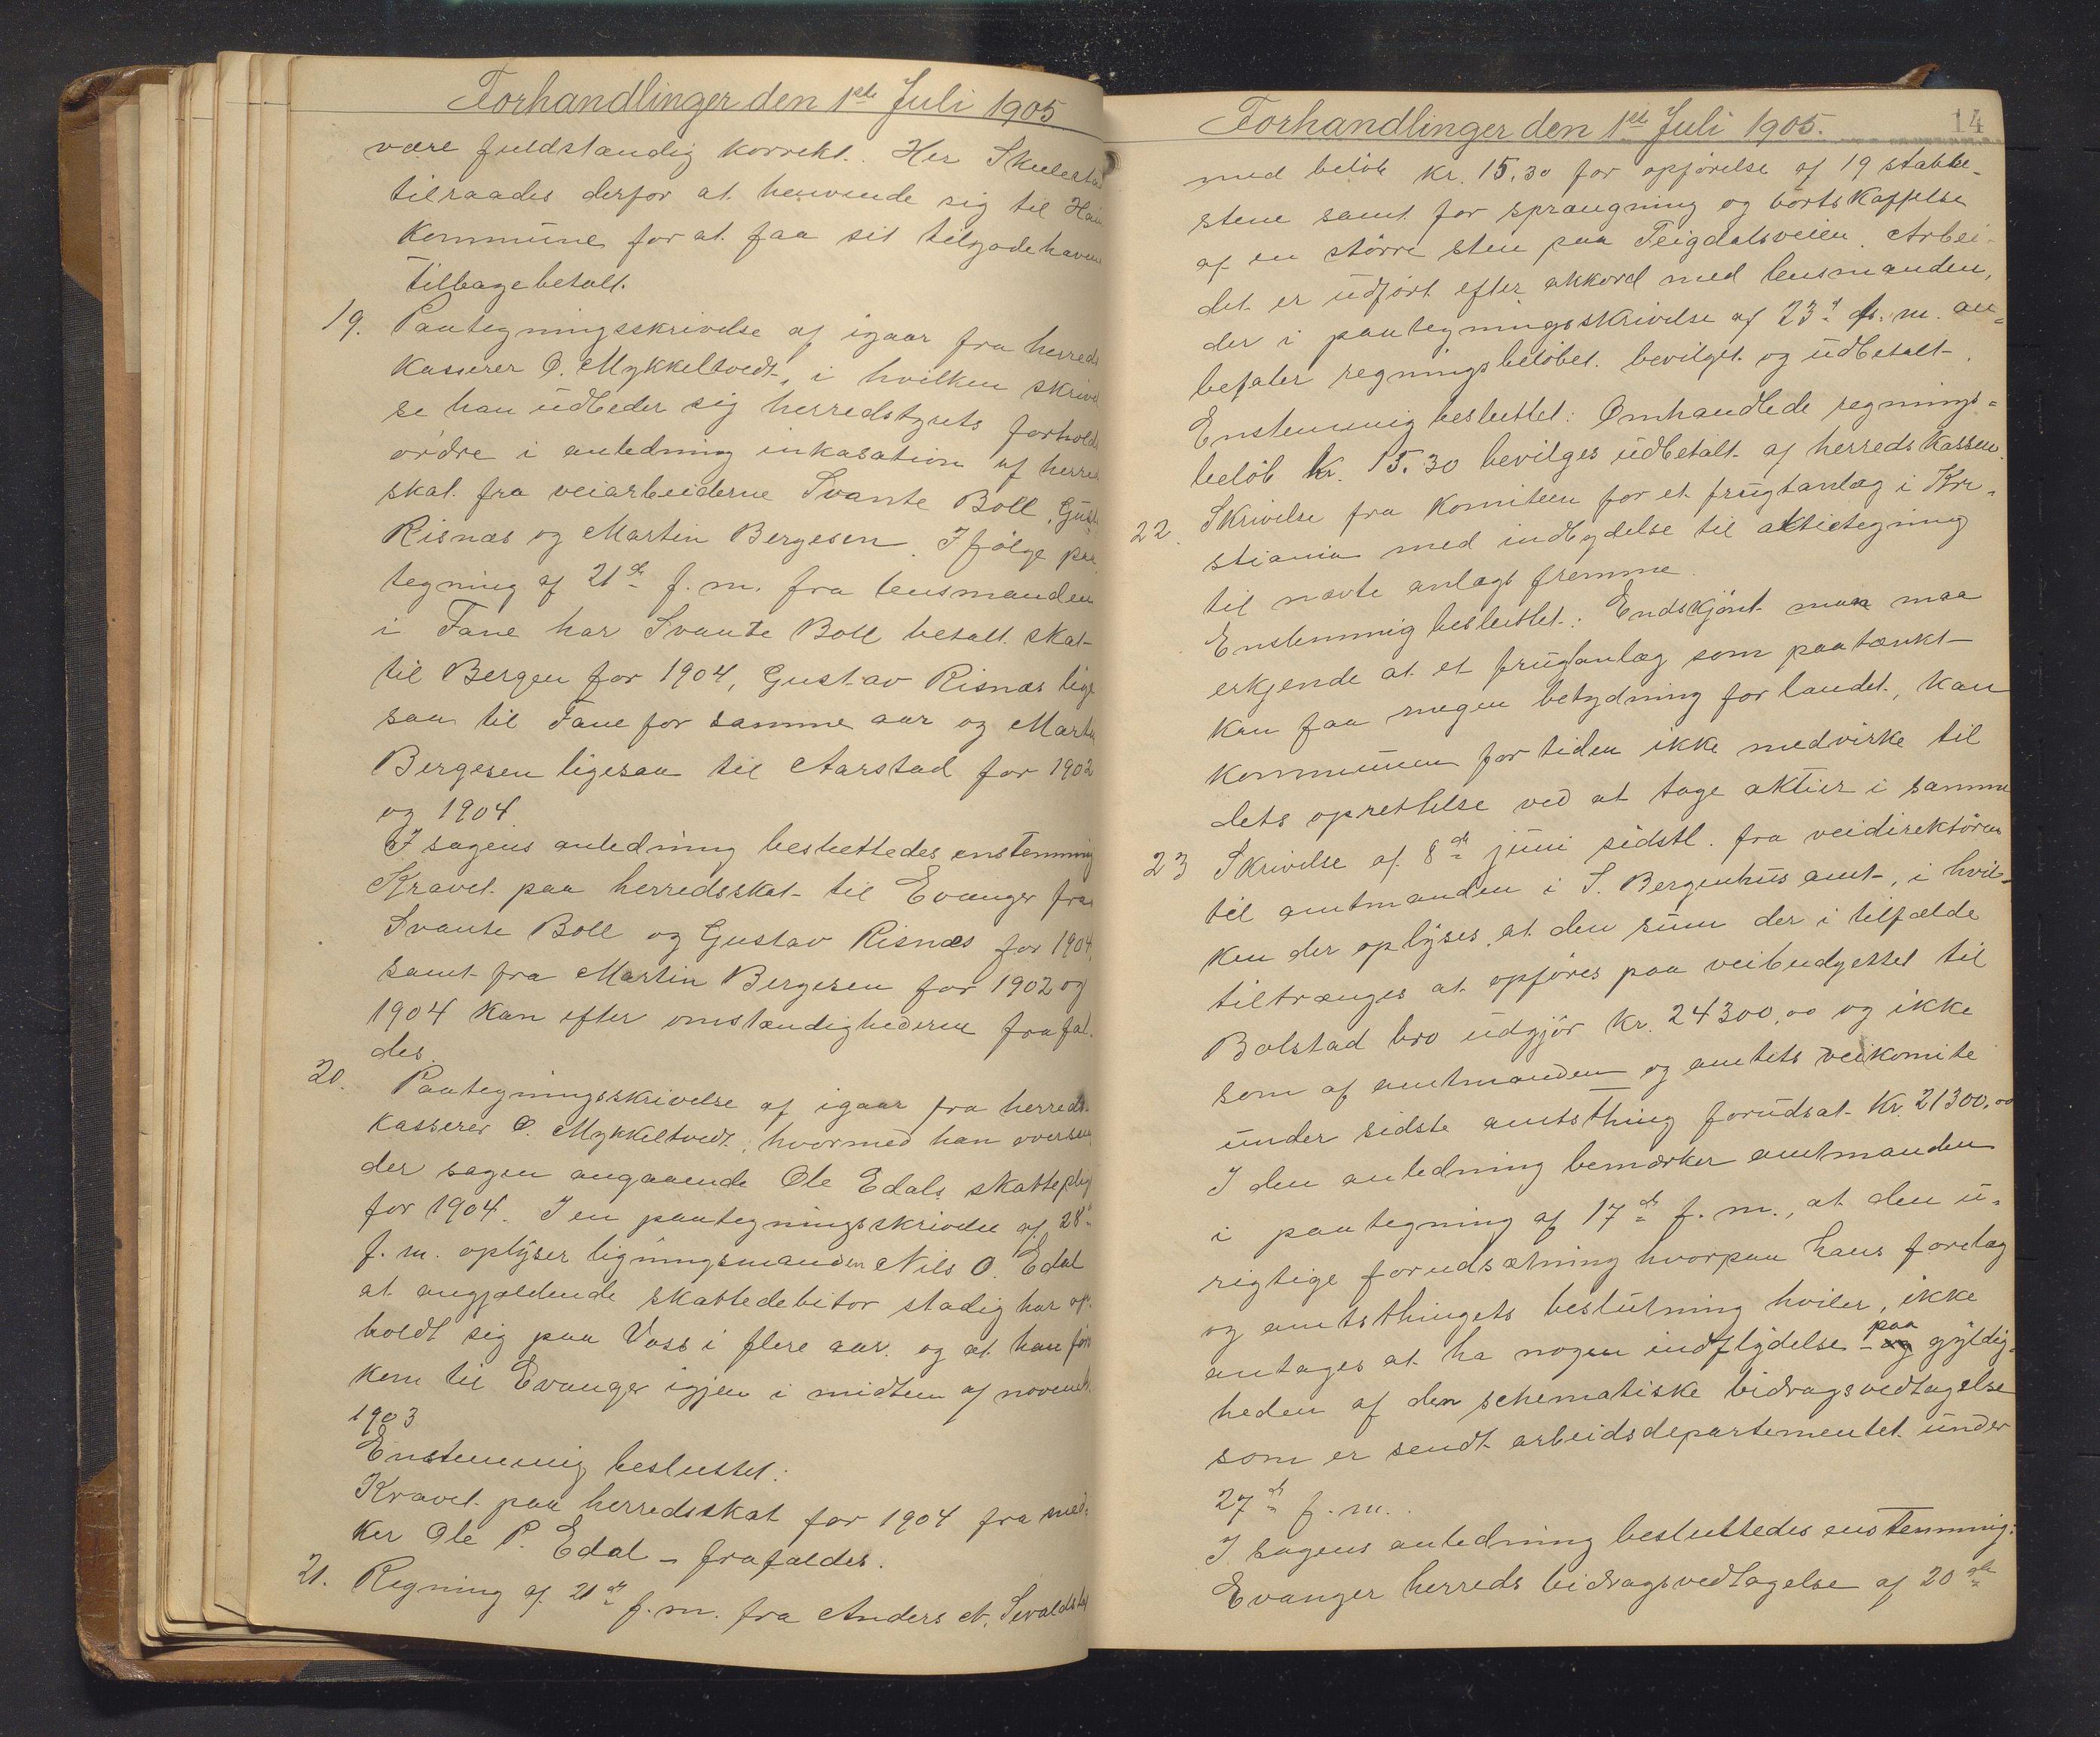 Forhandlinger den 1ste Juli 1905
være fuldstændig korrekt. Her Skulesta
tilraades derfor at henvende sig til
Kommune for at faa sit tilgodehaven
tilbagebetalt.
19. Paategningsskrivelse af igaar fra herreds
Kasserer O. Mykkeltvedt, i hvilken skrivel
se han udbeder sig herredstyrets forholds
ordre i anledning inkasation af herreds
skat fra veiarbeiderne Svante Boll, Gust
Risnæs og Martin Bergesen. Ifølge paa
tegning af 21de f.m. fra lensmanden
i Fane har Svante Boll betalt skat
til Bergen for 1904, Gustav Risnæs lige
saa til Fane for samme aar og Martin
Bergesen ligesaa til Aarstad for 1902
og 1904.
I sagens anledning besluttedes enstemmig
Kravet paa herredsskat til Evanger fra
Svante Boll og Gustav Risnæs for 1904,
samt fra Martin Bergesen for 1902 og
1904 kan efter omstændighederne frafal
des.
20. Paategningsskrivelse af igaar fra herreds-
kasserer O. Mykkeltvedt, hvormed han oversen
der sagen angaaende Ole Edals skattepligt
for 1904. I en paategningsskrivelse af 28de
f.m. oplyser ligningsmanden Nils O. Edal
at angjældende skattedebitor stadig har op-
holdt sig paa Voss i flere aar og at han først
kom til Evanger igjen i midten af novemb.
1903
Enstemmig besluttet:
Kravet paa herredsskat for 1904 fra sned-
ker Ole P. Edal - frafaldes.
21. Regning af 21de f.m. fra Anders N.
Forhandlinger den 1ste Juli 1905. 14
med beløb kr. 15.30 for opførelse af 19 stabbe-
stene samt for sprængning og bortskaffelse
af en større sten paa Teigdalsveien. Arbei-
det er udført efter akkord med lensmanden,
der i paategningsskrivelse af 23de f.m. an-
befaler regningsbeløbet bevilget og udbetalt.
Enstemmig besluttet: Omhandlede regnings-
beløb kr. 15.30 bevilges udbetalt af herredskassen.
22. Skrivelse fra Komiteen for et frugtanlæg i Kri-
stiania med indbydelse til aktietegning
til nævte anlægs fremme.
Enstemmig besluttet: Endskjønt man maa
erkjende at et frugtanlæg som paatænkt
kan faa megen betydning for landet, kan
kommunen for tiden ikke medvirke til
dets oprettelse ved at tage aktier i samme
23 Skrivelse af 8de juni sidstl. fra veidirektøren
til amtmanden i S. Bergenhus amt, i hvil-
ken der oplyses at den sum der i tilfælde
tiltrænges at opføres paa veibudgettet til
Bolstad bro udgjør kr. 24300,00 og ikke
som af amtmanden og amtets veikomite
under sidste amtsthing forudsat kr. 21300,00
I den anledning bemærker amtmanden
i paategning af 17de f.m., at den u-
rigtige forudsætning hvorpaa hans forelæg
og amtsthingets beslutning hviler, ikke
antages at ha nogen indflydelse paa gyldig-
heden af den schematiske bidragsvedtagelse
som er sendt arbeidsdepartementet under
27de f.m.
I sagens anledning besluttedes enstemmig:
Evanger herreds bidragsvedtagelse af 20de